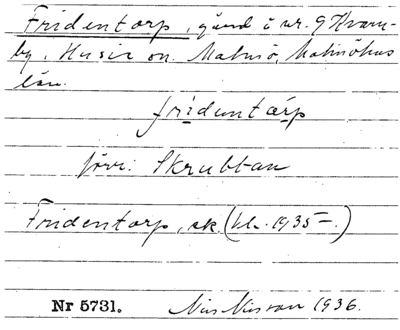 Fridentorp, gård i nr. 9 Kvarn-
by, Husie sn. Malmö, Malmöhus
län.
fridentårp
förr: Skrubban
Fridentorp, sk. (bl. 1935 –.)
Nr 5731. Nils Nilsson 1936.